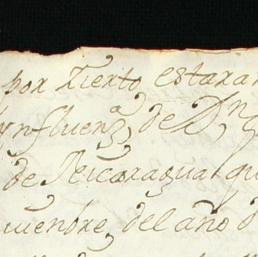 por zierto, estara
ynfluenz.ª de Dⁿ
de Neicaragua qu
uienbre, del año d